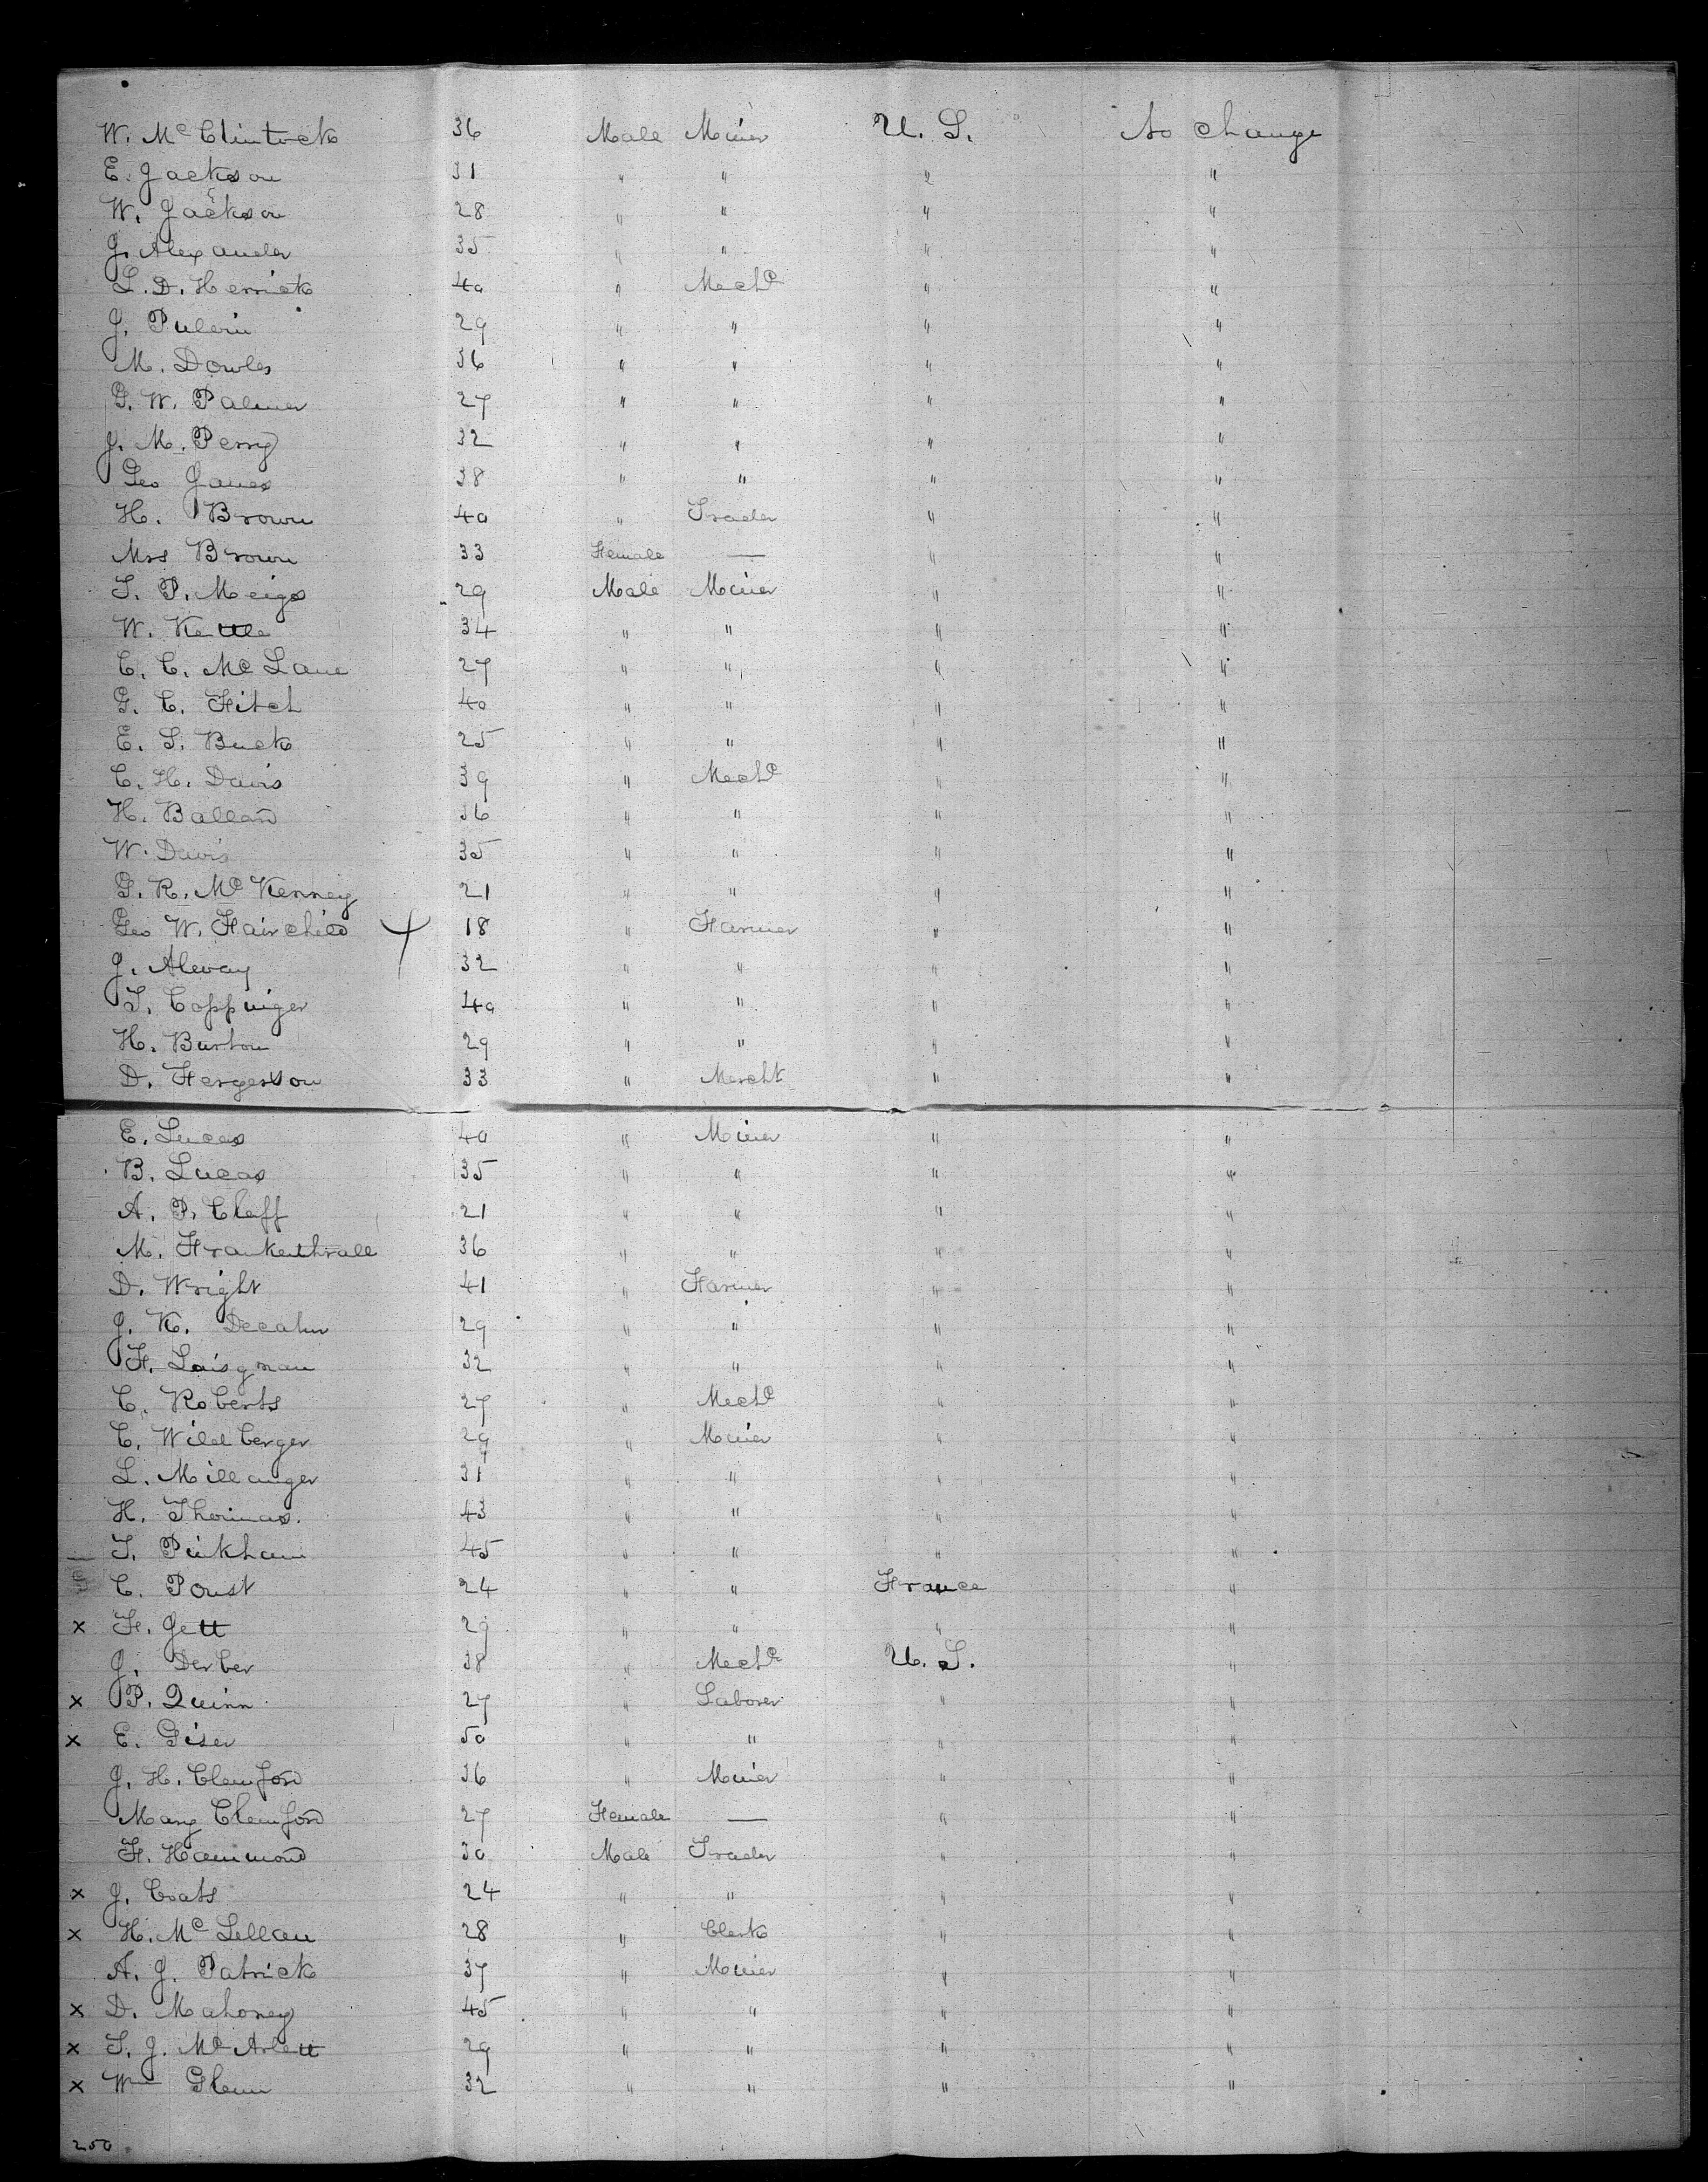 W. McClintock 36 Male Miner U. S. No change
E. Jackson 31 " " " "
W. Jackson 28 " " " "
J. Alexander 35 " " " "
L. D. Herrick 40 " Mechc " "
J. Pulern 29 " " " "
M. Dowles 36 " " " "
G. W. Palmer 27 " " " "
J. M. Perry 32 " " " "
Geo Janes 38 " " " "
H. Brown 40 " Trader " "
Mrs Brown 33 Female — " "
T. P. Meigs 29 Male Miner " "
W. Kettle 34 " " " "
C. C. McLane 27 " " " "
G. C. Fitch 40 " " " "
E. S. Buck 25 " " " "
C. H. Davis 39 " Mechc " "
H. Ballard 36 " " " "
W. Davis 35 " " " "
G. R. McKenney 21 " " " "
Geo W. Fairchild 18 " Farmer " "
J. Alevay 32 " " " "
T. Coppinger 40 " " " "
H. Burton 29 " " " "
D. Fergerson 33 " Mercht " "
E. Lucas 40 " Miner " "
B. Lucas 35 " " " "
A. P. Claff 21 " " " "
M. Frankenthrall 36 " " " "
D. Wright 41 " Farmer " "
J. K. Decahn 29 " " " "
F. Laisgman 32 " " " "
C. Roberts 27 " Mechc " "
C. Wildberger 29 " Miner " "
L. Millanger 31 " " " "
H. Thomas. 43 " " " "
T. Pinkham 45 " " " "
C. Poust 24 " " France "
x F. Gett 29 " " " "
J. Derber 38 " Mechc U. S. "
x P. Quinn 27 " Laborer " "
x E. Giser 50 " " " "
J. H. Clemford 36 " Miner " "
Mary Clemford 27 Female — " "
F. Hammond 30 Male Trader " "
x J. Coats 24 " " " "
x H. McLellan 28 " Clerk " "
A. J. Patrick 37 " Miner " "
x D. Mahoney 45 " " " "
x T. J. McArlett 29 " " " "
x Wm Glenn 32 " " " "
250